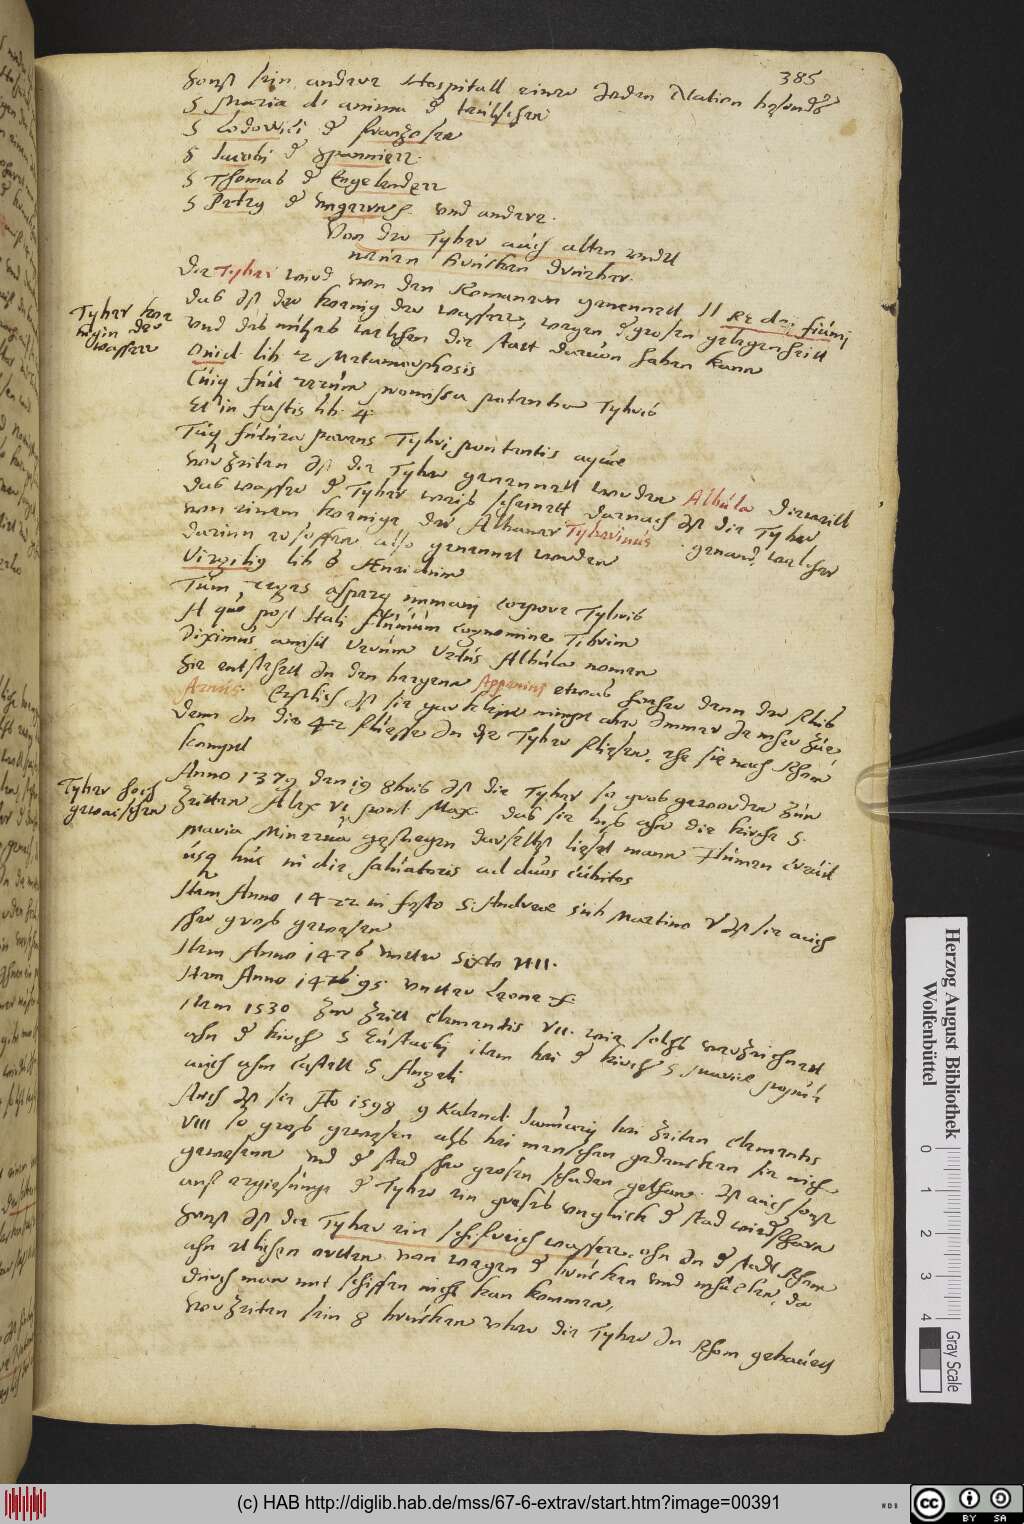 385
Sonst sein andere Hospitall einer Jeden Nation besonder
S Maria d' anima d' teutschen
S Lodovici d' franzosen
S Jacobi d' Spannierr
S Thomas d' Engelenderr
S Petrg d' Ungerrns. und andere.
Von der Tyber auch alten undt
neuen brucken druber.
Die Tyber wird von den Romanern genennett Il Re dei fiumi
das ist der koenig der wasserr, wegen d' grosen gelegenheitt
Tyber koe
nigin der
wasserr
und das nutzes welchen die statt darvon haben kann
Ovid. lib 12 Metamorphosis
Cuiq fuit rerum promissa potentia Tybris
Et in fastis lib. 4.
Tuq futura parens Tybri potentis aquae
Vor Zeiten ist die Tyber genennett worden Albula dieweill
das wasser d' Tyber weis scheinett darnach ist die Tyber
von einem koenige der Albaner Tyberinus genand, welcher
darinn ersoffen also genennet worden
Virgilig lib 8 Aeneidum
Tum reges asperq immani corpore Tybris
A quo post Itali flumum cognomine Tibrim
diximus amisit verum vetus Albula nomen
Sie entstehett in den bergenn Appenini etwas hoher dann der flus
Arnus. Erstlich ist sie gar klein nimpt aber immer je mher zue
dann in die 42 fliesse in die Tyber fliesen, ehe sie nach Rhom
kompt
Anno 1379 den 19 8bris ist die Tyber so gros geworden zun
Tyber hoch
gewaschen
Zeitten Alex VI pont Max. das sie bis ahn die kirche S.
Maria Minerva gestiegen daselbst liesett mann Flumen crevit
usq huc in die salvatoris ad duos cubitos
Item Anno 1422 in festo S. Andreae sub Martino V ist sie auch
sher gros gewesen
Item Anno 1476 unter Sixto IIII.
Item Anno 1495 unter Leone
Item 1530 Zur Zeitt Clementis VII. wie solchs verzeichnett
ahn d' kirch S Eustachi item bei d' kirch S Mariae populi
auch ahm Castell S Angeli
Auch ist sie Ao 1598 9 Kalend. Januarij bei Zeiten Clementis
VIII so gros gewesen als bei menschen gedencken sie nich
gewesenn und d' stad sher grosen schaden gethan. Ist auch sonst
auf ergiesung d' Tyber ein groses ungluck d' stad wiedfharn
Sonst ist die Tyber ein schifreich wasserr, ohn in d' stadt Rhom
ahn etlichen ortten von wegen d' brucken und mhuelen, da
durch man mit schiffen nicht kan kommen,
Vor Zeiten sein 8 brucken uber die Tyber in Rhom gebauett
Herzog August Bibliothek
Wolfenbüttel
0 1 2 3 4
Gray Scale
(c) HAB http://diglib.hab.de/mss/67-6-extrav/start.htm?image=00391
WDB
cc BY SA